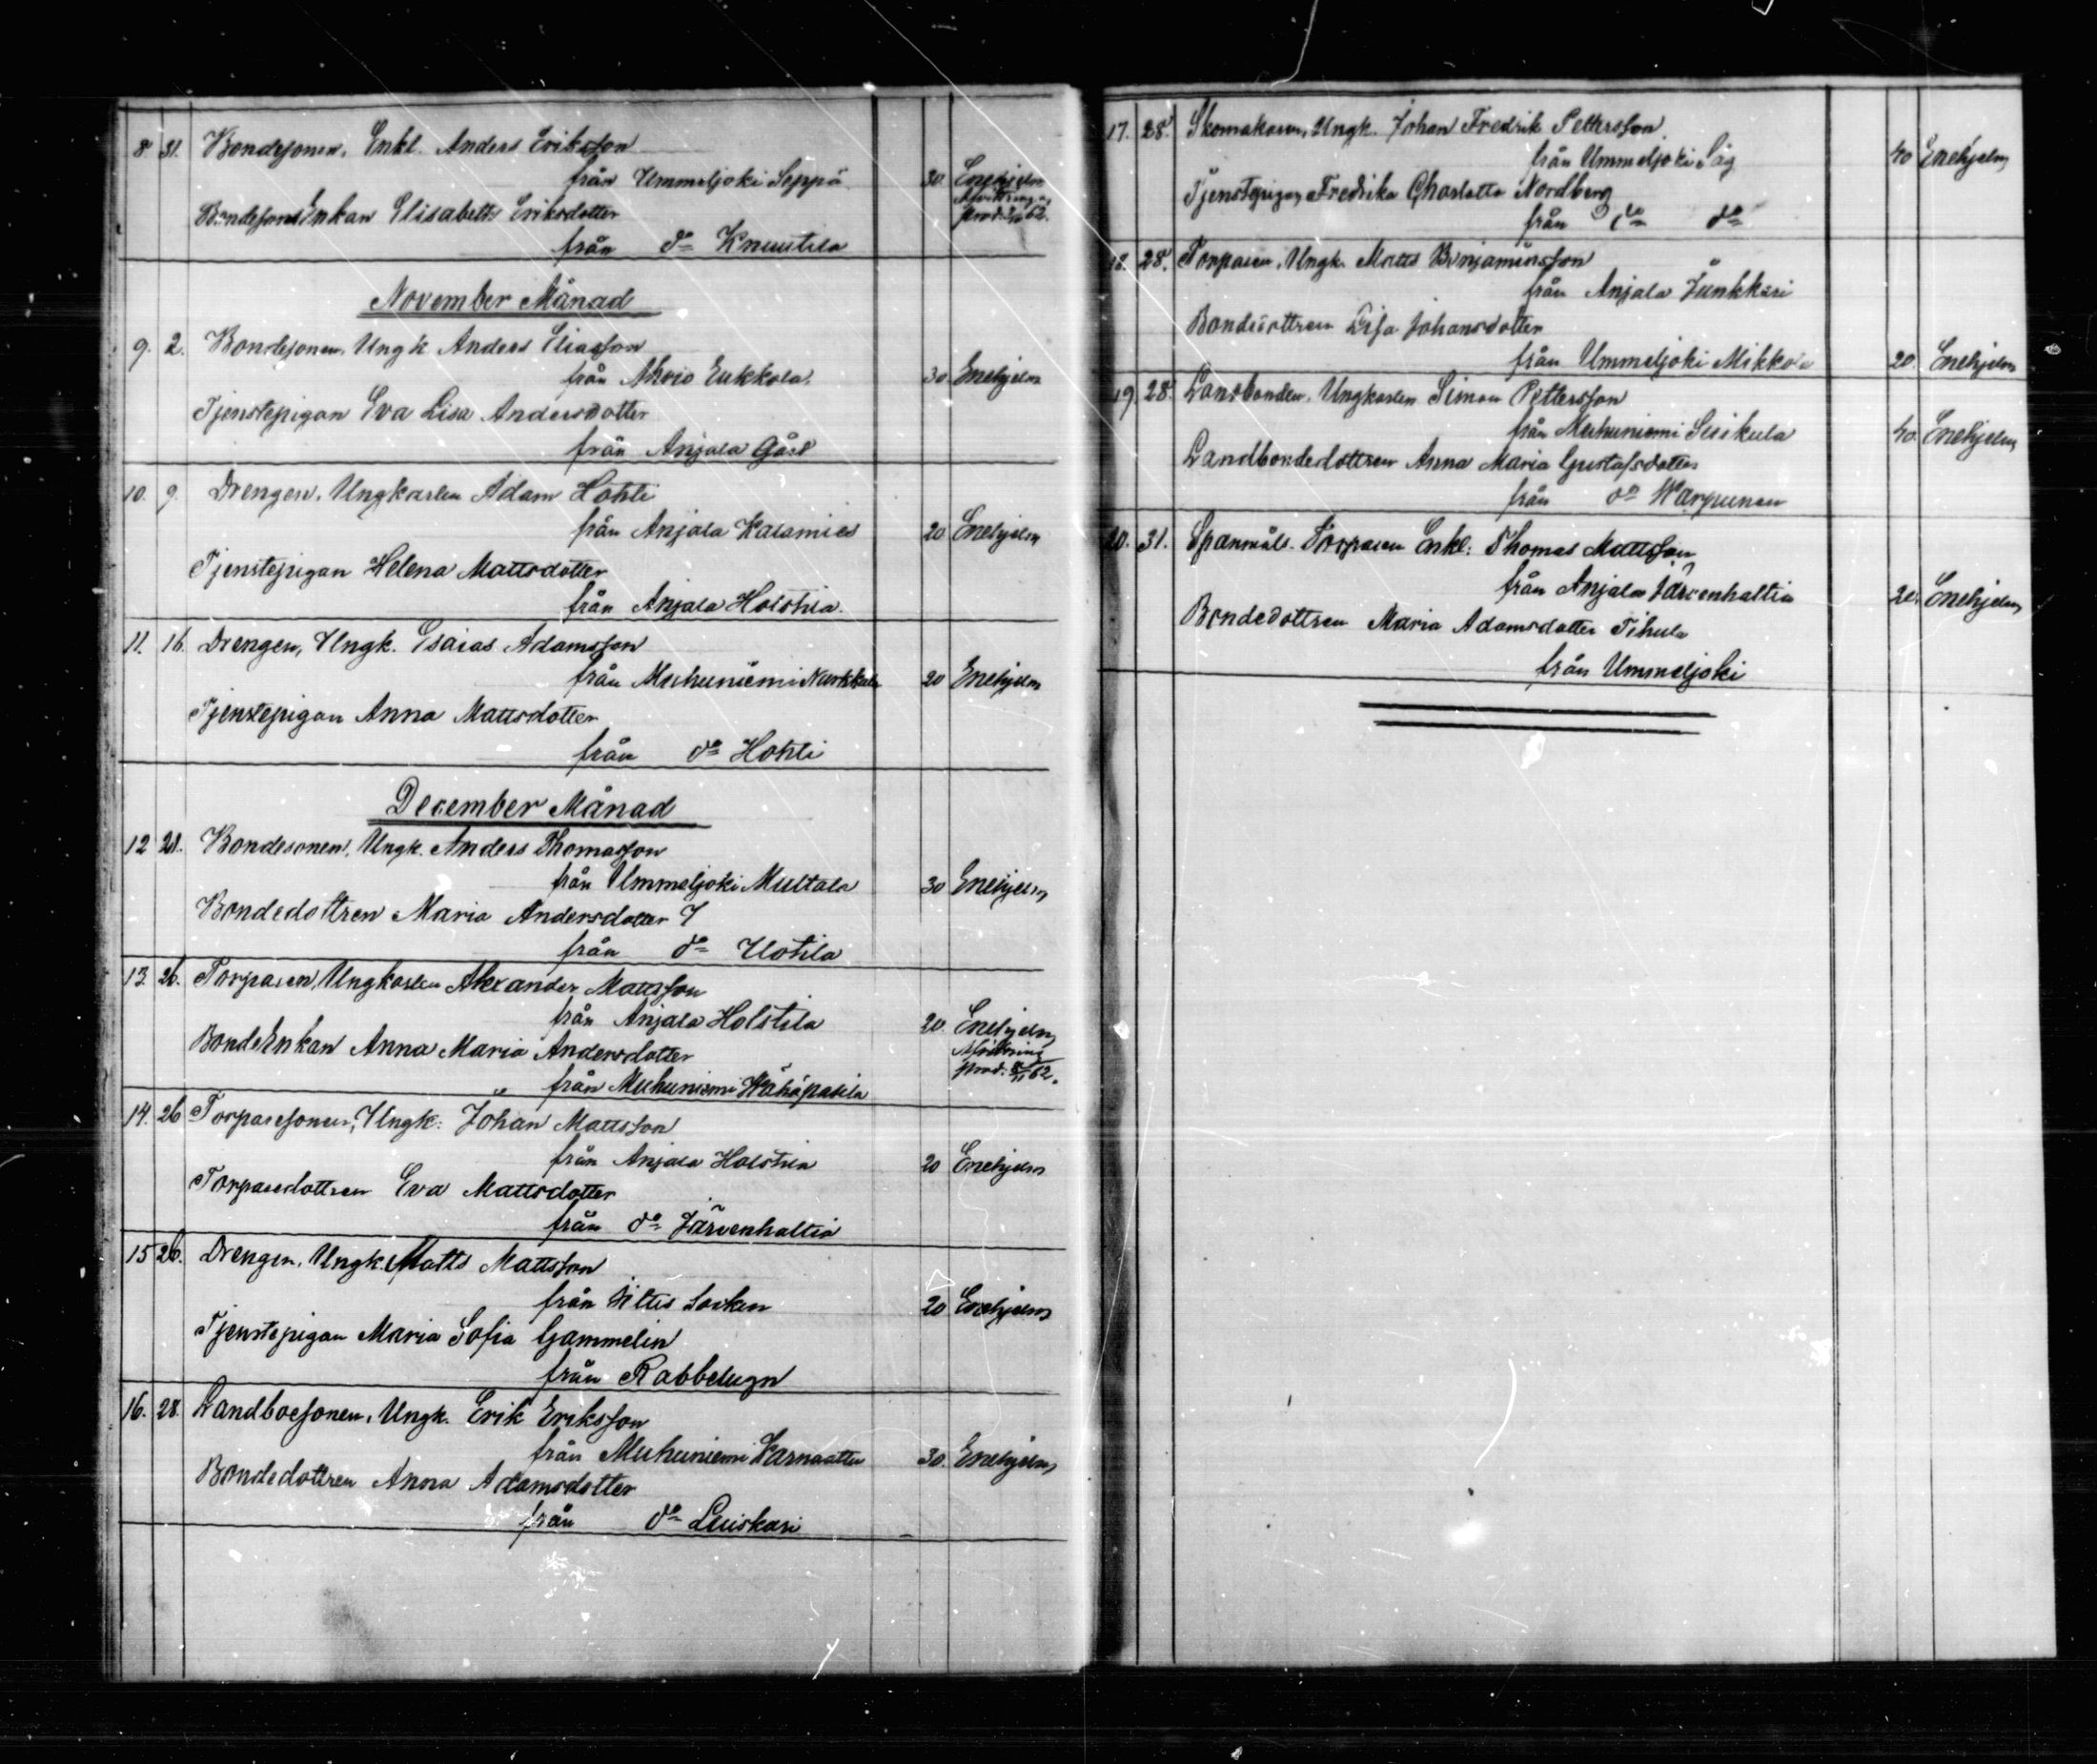 8 31. Bondesonen, Enkl. Anders Eriksson
från Ummeljoki Seppä 30. Enehjelm
Afvittring
prod. 62.
Bondesons Enkan Elisabeth Eriksdotter
från do Knuutila
November Månad
9. 2. Bondesonen, Ungk Anders Eliasson
från Ahvio Eukkola. 30 Enehjelm
Tjenstepigan Eva Lisa Andersdotter
från Anjala Gård
10. 9. Drengen, Ungkarlen Adam Hohti
från Anjala Kalamies 20 Enehjelm
Tjenstepigan Helena Mattsdotter
från Anjala Holstila.
11. 16. Drengen, Ungk. Esaias Adamsson
från Muhuniemi Nurkkala 20 Enehjelm
Tjenstepigan Anna Mattsdotter
från do Hohti
December Månad
12 21. Bondesonen, Ungk. Anders Thomasson
från Ummeljoki Multala 30 Enehjelm
Bondedottren Maria Andersdotter
från do Uotila
13. 26. Torparen, Ungkarlen Alexander Mattsson
från Anjala Holstila 20. Enehjelm
Afvittring
prod. 62.
BondeEnkan Anna Maria Andersdotter
från Muhuniemi Wähäpasila
14. 26 Torparesonen, Ungk. Johan Mattsson
från Anjala Holstila 20 Enehjelm
Torparedottren Eva Mattsdotter
från do Järvenhaltia
15 26. Drengen, Ungk. Matts Mattsson
från Iittis Socken 20 Enehjelm
Tjenstepigan Maria Sofia Gammelin
från Rabbelugn
16. 28. Landboesonen, Ungk. Erik Eriksson
från Muhuniemi Karnaattu 30. Enehjelm
Bondedottren Anna Adamsdotter
från do Luiskari
17. 28. Skomakaren, Ungk. Johan Fredrik Pettersson
från Ummeljoki Såg 40 Enehjelm
Tjenstepigan Fredrika Charlotta Nordberg
från do do
18. 28. Torparen, Ungk. Matts Benjaminsson
från Anjala Junkkari
Bondedottren Lisa Johansdotter
från Ummeljoki Mikkola 20. Enehjelm
19. 28. Landbonden, Ungkarlen Simon Pettersson
från Muhuniemi Seikula 40. Enehjelm
Landbondedottren Anna Maria Gustafsdotter
från do Warpunen
20. 31. Spanmåls Torparen Enkl. Thomas Mattsson
från Anjala Järvenhaltia 20. Enehjelm
Bondedottren Maria Adamsdotter Tihula
från Ummeljoki